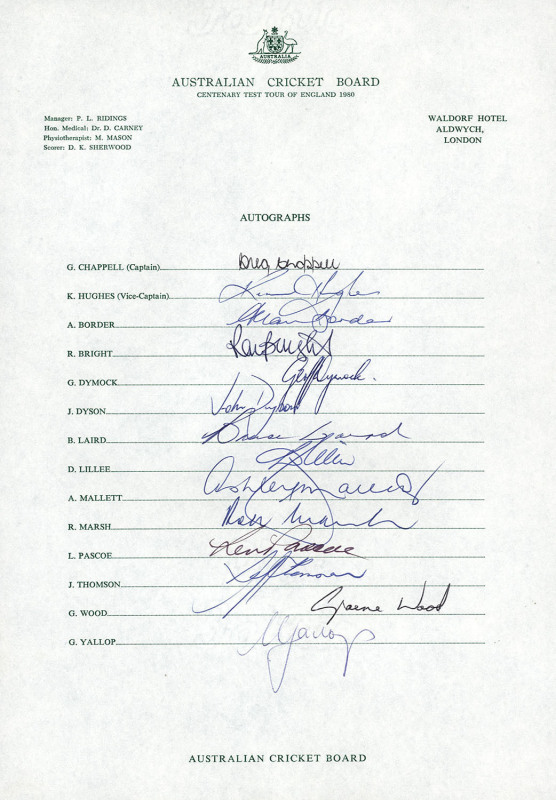 AUSTRALIA
AUSTRALIAN CRICKET BOARD
CENTENARY TEST TOUR OF ENGLAND 1980
Manager: P. L. RIDINGS
Hon. Medical: Dr. D. CARNEY
Physiotherapist: M. MASON
Scorer: D. K. SHERWOOD
WALDORF HOTEL
ALDWYCH,
LONDON
AUTOGRAPHS
G. CHAPPELL (Captain) Greg Chappell
K. HUGHES (Vice-Captain) Kim J Hughes
A. BORDER Allan Border
R. BRIGHT Ray Bright
G. DYMOCK Geoff Dymock.
J. DYSON John Dyson
B. LAIRD Bruce Laird
D. LILLEE DLillee
A. MALLETT Ashley Mallett
R. MARSH Rod Marsh
L. PASCOE Len Pascoe
J. THOMSON Jeff Thomson
G. WOOD Graeme Wood
G. YALLOP GYallop
AUSTRALIAN CRICKET BOARD